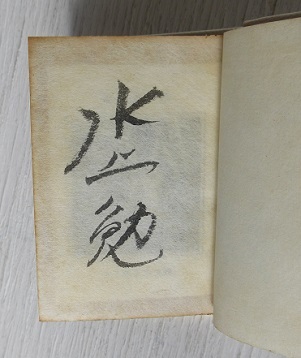 水上勉